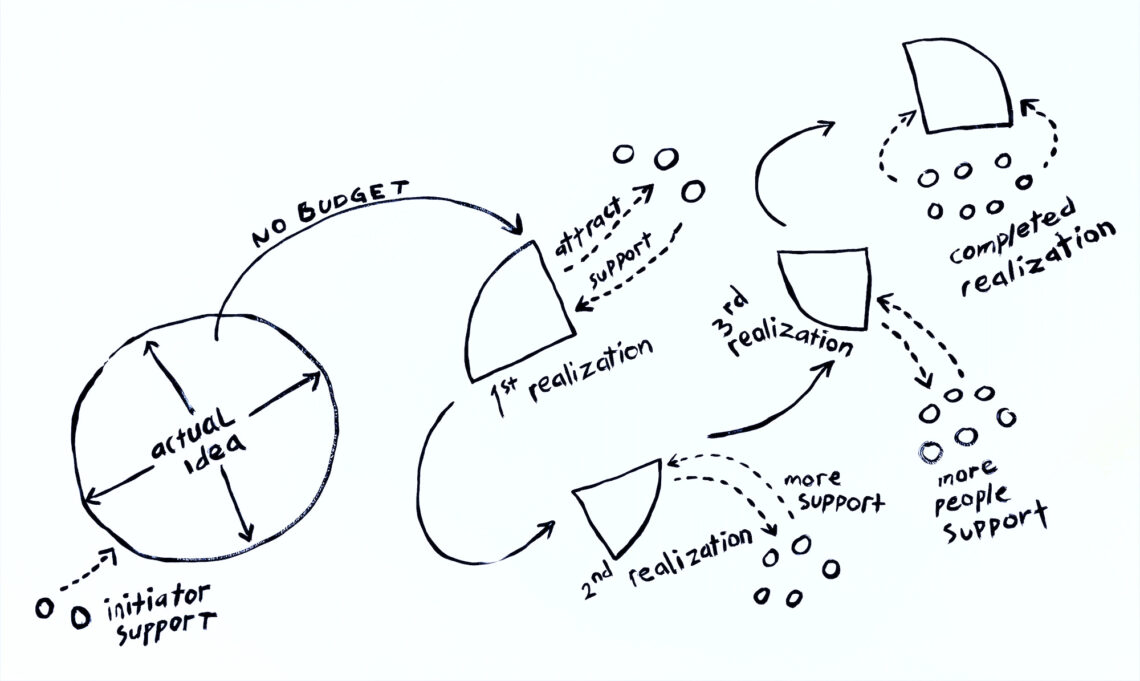 NO BUDGET
actual
idea
initiator
support
attract
support
1st realization
2nd realization
more
support
3rd
realization
more
people
support
completed
realization